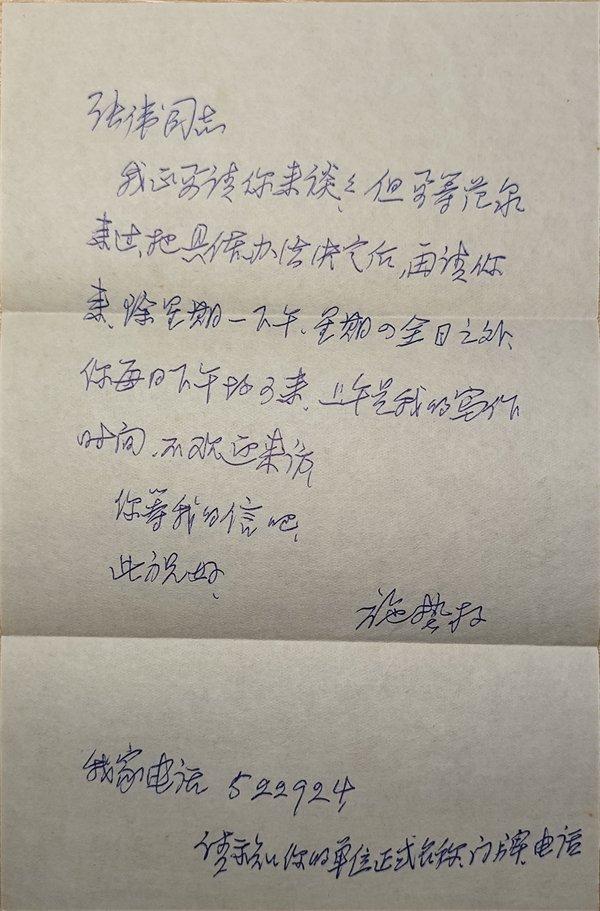 张伟同志
我正要请你来谈谈,但要等范泉
来过,把具体办法决定后,再请你
来,除星期一下午、星期四全日之外,
你每日下午均可来,上午是我的写作
时间,不欢迎来访
你等我的信吧,
此祝好,
施蛰存
我家电话 522924
请示知你的单位正式名称、门牌、电话